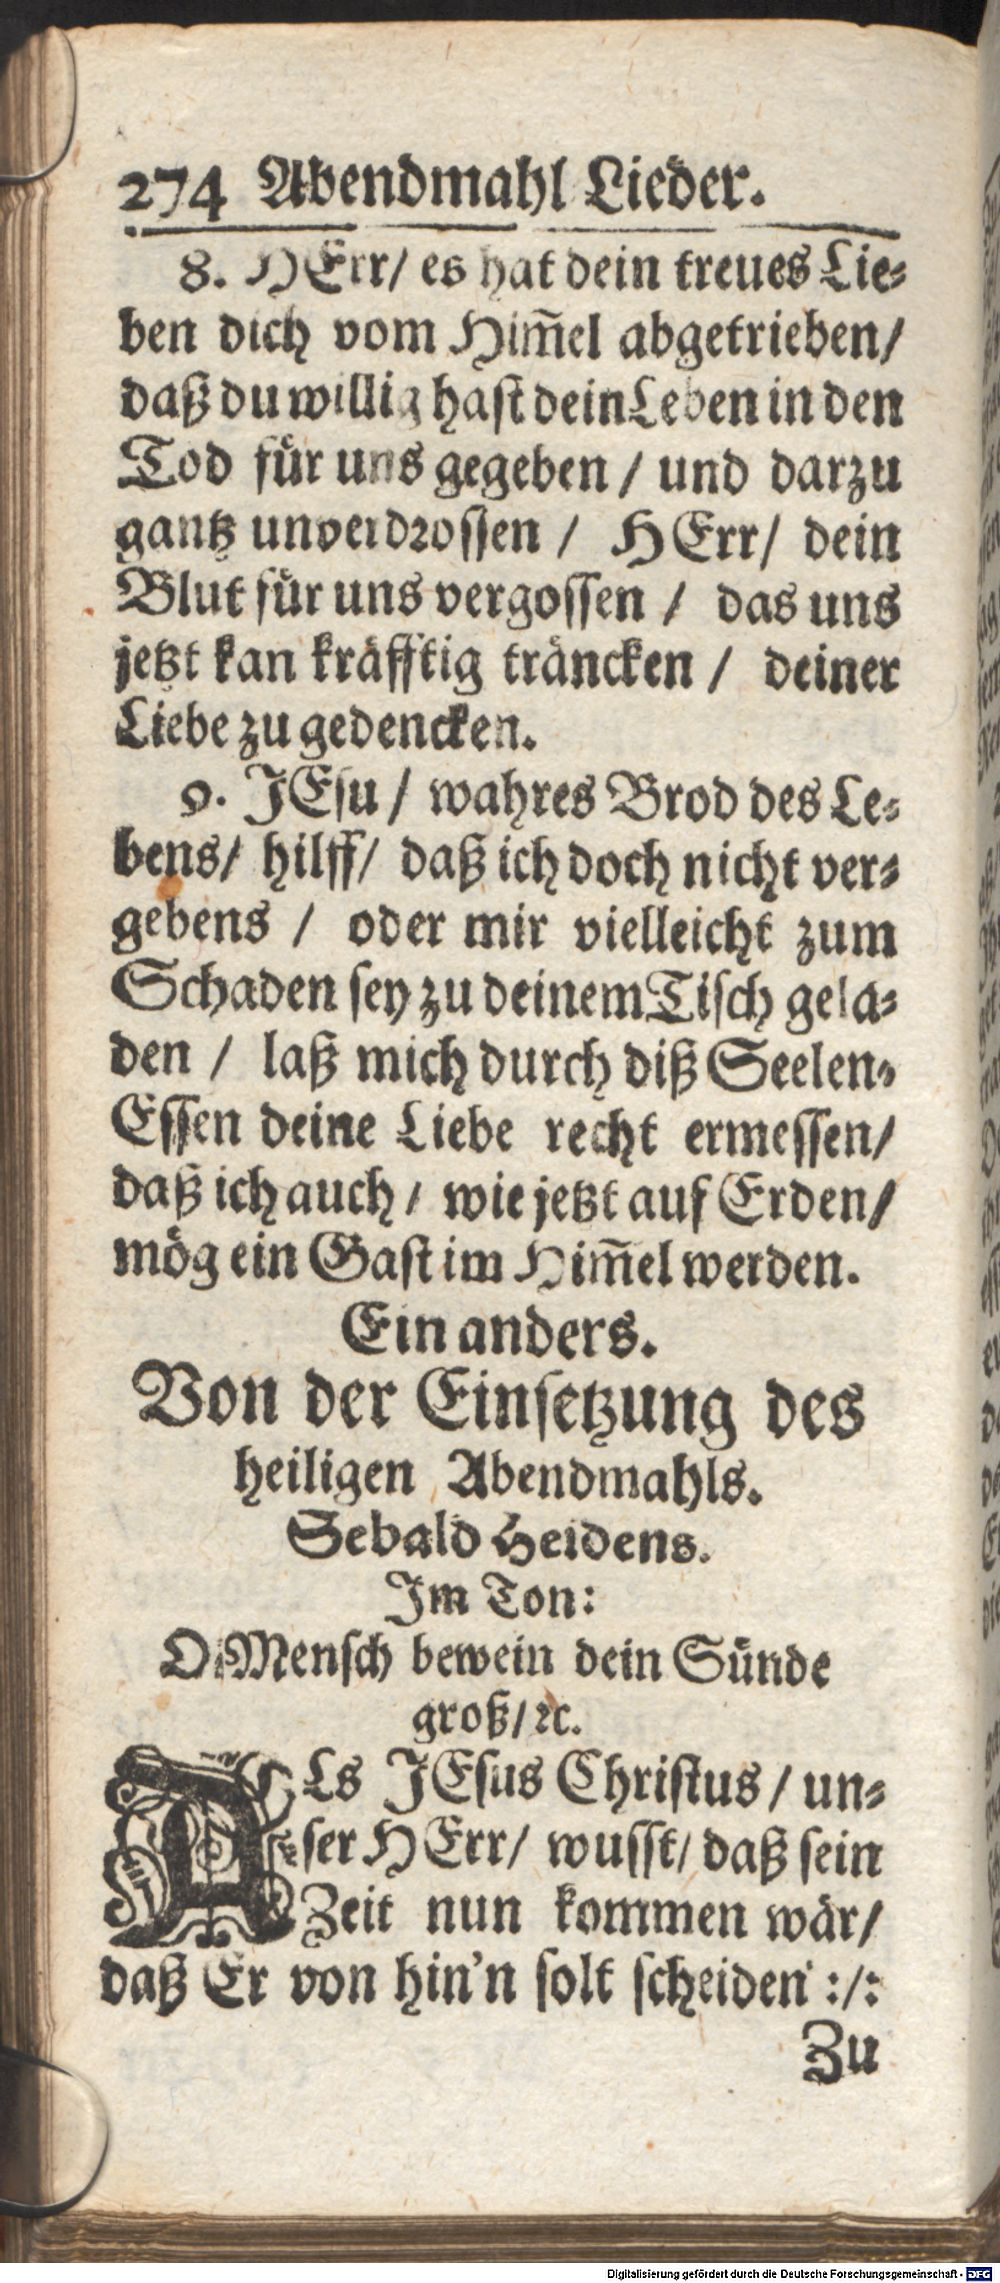 274 Abendmahl Lieder.
8. HErr/ es hat dein treues Lie⸗
ben dich vom Him̃el abgetrieben/
daß du willig hast dein Leben in den
Tod für uns gegeben / und darzu
gantz unverdrossen / HErr/ dein
Blut für uns vergossen / das uns
jetzt kan kräfftig träncken / deiner
Liebe zu gedencken.
9. JEsu / wahres Brod des Le⸗
bens/ hilff/ daß ich doch nicht ver⸗
gebens / oder mir vielleicht zum
Schaden sey zu deinem Tisch gela⸗
den / laß mich durch diß Seelen⸗
Essen deine Liebe recht ermessen/
daß ich auch / wie jetzt auf Erden/
mög ein Gast im Him̃el werden.
Ein anders.
Von der Einsetzung des
heiligen Abendmahls.
Sebald Heidens.
Im Ton:
O Mensch bewein dein Sünde
groß/ ꝛc.
ALs JEsus Christus / un⸗
ser HErr/ wusst/ daß sein
Zeit nun kommen wär/
daß Er von hin'n solt scheiden :/:
Zu
Digitalisierung gefördert durch die Deutsche Forschungsgemeinschaft - DFG